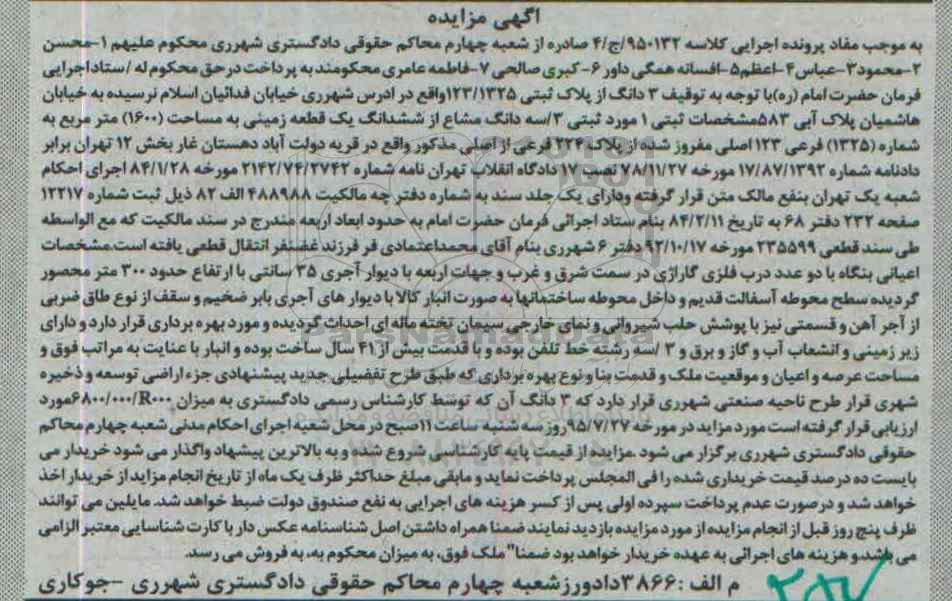 آگهی مزایده
به موجب مفاد پرونده اجرایی کلاسه ۹۵۰۱۳۲/ج/۴ صادره از شعبه چهارم محاکم حقوقی دادگستری شهرری محکوم علیهم ۱-محسن
۲-محمود۳-عباس۴-اعظم۵-افسانه همگی داور ۶-کبری صالحی ۷-فاطمه عامری محکومند به پرداخت در حق محکوم له /ستاد اجرایی
فرمان حضرت امام (ره)با توجه به توقیف ۳ دانگ از پلاک ثبتی ۱۲۳/۱۳۲۵واقع در ادرس شهرری خیابان فدائیان اسلام نرسیده به خیابان
هاشمیان پلاک آبی ۵۸۳مشخصات ثبتی ۱ مورد ثبتی ۳/سه دانگ مشاع از ششدانگ یک قطعه زمینی به مساحت (۱۶۰۰) متر مربع به
شماره (۱۳۲۵) فرعی ۱۲۳ اصلی مفروز شده از پلاک ۲۲۴ فرعی از اصلی مذکور واقع در قریه دولت آباد دهستان غار بخش ۱۲ تهران برابر
دادنامه شماره ۱۷/۸۷/۱۳۹۲ مورخه ۷۸/۱۱/۲۷ دادگاه انقلاب تهران نامه شماره ۲۱۴۲/۷۴/۲۷۴۲ مورخه ۸۴/۱/۲۸ اجرای احکام
شعبه یک تهران بنفع مالک متن قرار گرفته ودارای یک جلد سند به شماره دفتر چه مالکیت ۴۸۸۹۸۸ الف ۸۲ ذیل ثبت شماره ۱۲۲۱۷
صفحه ۲۳۲ دفتر ۶۸ به تاریخ ۸۴/۲/۱۱ بنام ستاد اجرائی فرمان حضرت امام به حدود ابعاد اربعه مندرج در سند مالکیت که مع الواسطه
طی سند قطعی ۲۳۵۵۹۹ مورخه ۹۲/۱۰/۱۷ دفتر ۶ شهرری بنام آقای محمداعتمادی فر فرزند غضنفر انتقال قطعی یافته است.مشخصات
اعیانی بنگاه با دو عدد درب فلزی گاراژی در سمت شرق و غرب و جهات اربعه با دیوار آجری ۳۵ سانتی با ارتفاع حدود ۳۰۰ متر محصور
گردیده سطح محوطه آسفالت قدیم و داخل محوطه ساختمانها به صورت انبار کالا با دیوار های آجری بابر ضخیم و سقف از نوع طاق ضربی
از آجر آهن و قسمتی نیز با پوشش حلب شیروانی و نمای خارجی سیمان تخته ماله ای احداث گردیده و مورد بهره برداری قرار دارد و دارای
زیر زمینی و انشعاب آب و گاز و برق و ۳ /سه رشته خط تلفن بوده و با قدمت بیش از ۴۱ سال ساخت بوده و انبار با عنایت به مراتب فوق و
مساحت عرصه و اعیان و موقعیت ملک و قدمت بنا و نوع بهره برداری که طبق طرح تفضیلی جدید پیشنهادی جزء اراضی توسعه و ذخیره
شهری قرار طرح ناحیه صنعتی شهرری قرار دارد که ۳ دانگ آن که توسط کارشناس رسمی دادگستری به میزان ۶۸۰۰/۰۰۰/R۰۰۰مورد
ارزیابی قرار گرفته است مورد مزاید در مورخه ۹۵/۷/۲۷روز سه شنبه ساعت ۱۱صبح در محل شعبه اجرای احکام مدنی شعبه چهارم محاکم
حقوقی دادگستری شهرری برگزار می شود .مزایده از قیمت پایه کارشناسی شروع شده و به بالاترین پیشنهاد واگذار می شود خریدار می
بایست ده درصد قیمت خریداری شده را فی المجلس پرداخت نماید و مابقی مبلغ حداکثر ظرف یک ماه از تاریخ انجام مزاید از خریدار اخذ
خواهد شد و درصورت عدم پرداخت سپرده اولی پس از کسر هزینه های اجرایی به نفع صندوق دولت ضبط خواهد شد. مایلین می توانند
ظرف پنج روز قبل از انجام مزایده از مورد مزایده بازدید نمایند ضمنا همراه داشتن اصل شناسنامه عکس دار یا کارت شناسایی معتبر الزامی
می باشدو هزینه های اجرائی به عهده خریدار خواهد بود ضمنا" ملک فوق، به میزان محکوم به، به فروش می رسد.
م الف :۳۸۶۶دادورزشعبه چهارم محاکم حقوقی دادگستری شهرری -جوکاری